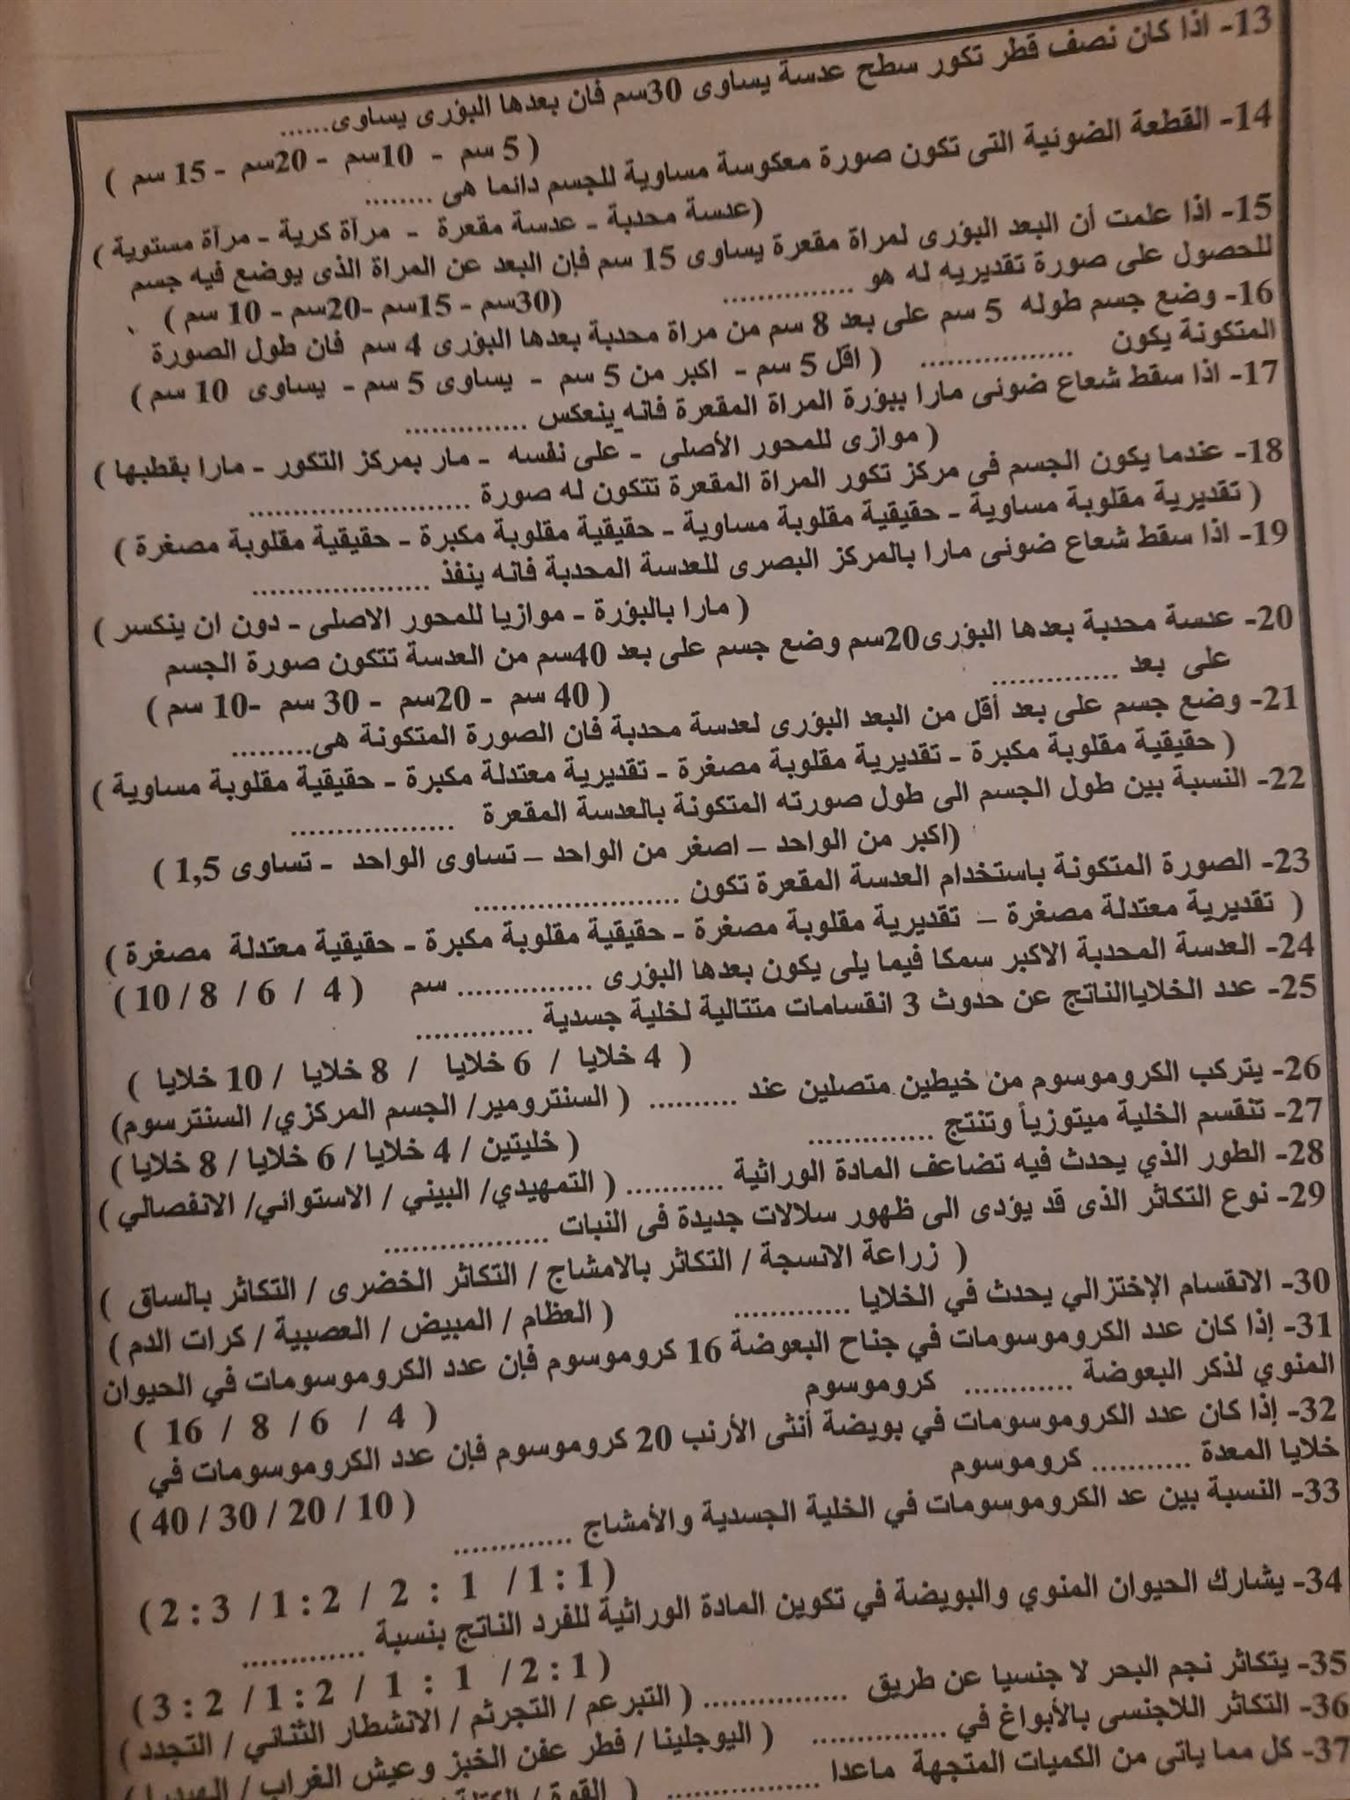 13- اذا كان نصف قطر تكور سطح عدسة يساوى 30سم فان بعدها البؤرى يساوى......
( 5 سم - 10سم - 20سم - 15 سم )
14- القطعة الضوئية التى تكون صورة معكوسة مساوية للجسم دائما هى ........
(عدسة محدبة - عدسة مقعرة - مرآة كرية - مرآة مستوية )
15- اذا علمت أن البعد البؤرى لمراة مقعرة يساوى 15 سم فإن البعد عن المراة الذى يوضع فيه جسم
للحصول على صورة تقديريه له هو ............... (30سم - 15سم -20سم - 10 سم )
16- وضع جسم طوله 5 سم على بعد 8 سم من مراة محدبة بعدها البؤرى 4 سم فان طول الصورة
المتكونة يكون ................. ( اقل 5 سم - اكبر من 5 سم - يساوى 5 سم - يساوى 10 سم )
17- اذا سقط شعاع ضوئى مارا ببؤرة المراة المقعرة فانه ينعكس ..............
( موازى للمحور الأصلى - على نفسه - مار بمركز التكور - مارا بقطبها )
18- عندما يكون الجسم فى مركز تكور المراة المقعرة تتكون له صورة .........................
( تقديرية مقلوبة مساوية - حقيقية مقلوبة مساوية - حقيقية مقلوبة مكبرة - حقيقية مقلوبة مصغرة )
19- اذا سقط شعاع ضوئى مارا بالمركز البصرى للعدسة المحدبة فانه ينفذ ....................
( مارا بالبؤرة - موازيا للمحور الاصلى - دون ان ينكسر )
20- عدسة محدبة بعدها البؤرى20سم وضع جسم على بعد 40سم من العدسة تتكون صورة الجسم
على بعد .............. ( 40 سم - 20سم - 30 سم -10 سم )
21- وضع جسم على بعد أقل من البعد البؤرى لعدسة محدبة فان الصورة المتكونة هى.........
( حقيقية مقلوبة مكبرة - تقديرية مقلوبة مصغرة - تقديرية معتدلة مكبرة - حقيقية مقلوبة مساوية )
22- النسبة بين طول الجسم الى طول صورته المتكونة بالعدسة المقعرة ..................
(اكبر من الواحد – اصغر من الواحد – تساوى الواحد - تساوى 1,5 )
23- الصورة المتكونة باستخدام العدسة المقعرة تكون .......................
( تقديرية معتدلة مصغرة – تقديرية مقلوبة مصغرة - حقيقية مقلوبة مكبرة - حقيقية معتدلة مصغرة )
24- العدسة المحدبة الاكبر سمكا فيما يلى يكون بعدها البؤرى ............... سم ( 4 / 6 / 8 / 10 )
25- عدد الخلاياالناتج عن حدوث 3 انقسامات متتالية لخلية جسدية .............
( 4 خلايا / 6 خلايا / 8 خلايا / 10 خلايا )
26- يتركب الكروموسوم من خيطين متصلين عند .......... ( السنترومير/ الجسم المركزي/ السنترسوم)
27- تنقسم الخلية ميتوزياً وتنتج .............. ( خليتين / 4 خلايا / 6 خلايا / 8 خلايا )
28- الطور الذي يحدث فيه تضاعف المادة الوراثية ........... ( التمهيدي/ البيني / الاستوائي/ الانفصالي )
29- نوع التكاثر الذى قد يؤدى الى ظهور سلالات جديدة فى النبات ..................
( زراعة الانسجة / التكاثر بالامشاج / التكاثر الخضرى / التكاثر بالساق )
30- الانقسام الإختزالي يحدث في الخلايا ............. ( العظام / المبيض / العصبية / كرات الدم )
31- إذا كان عدد الكروموسومات في جناح البعوضة 16 كروموسوم فإن عدد الكروموسومات في الحيوان
المنوي لذكر البعوضة ............ كروموسوم ( 4 / 6 / 8 / 16 )
32- إذا كان عدد الكروموسومات في بويضة أنثى الأرنب 20 كروموسوم فإن عدد الكروموسومات في
خلايا المعدة ........... كروموسوم ( 10 / 20 / 30 / 40 )
33- النسبة بين عد الكروموسومات في الخلية الجسدية والأمشاج .............
( 1 : 1 / 1 : 2 / 2 : 1 / 3 : 2 )
34- يشارك الحيوان المنوي والبويضة في تكوين المادة الوراثية للفرد الناتج بنسبة .............
( 1 : 2 / 1 : 1 / 2 : 1 / 2 : 3 )
35- يتكاثر نجم البحر لا جنسيا عن طريق ................ ( التبرعم / التجرثم / الانشطار الثنائي / التجدد )
36- التكاثر اللاجنسى بالأبواغ في .............. ( اليوجلينا / فطر عفن الخبز وعيش الغراب /
37- كل مما يأتى من الكميات المتجهة ماعدا ................ ( القوة /